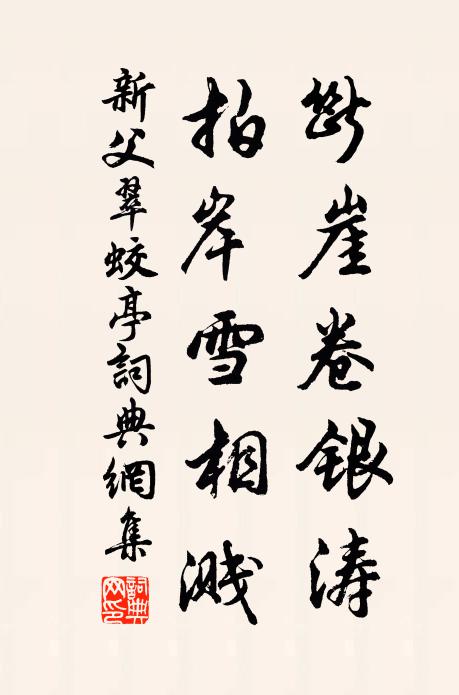 斷崖卷銀涛
拍岸雪相溅
新父翠蛟亭詞典網集
詞典网印